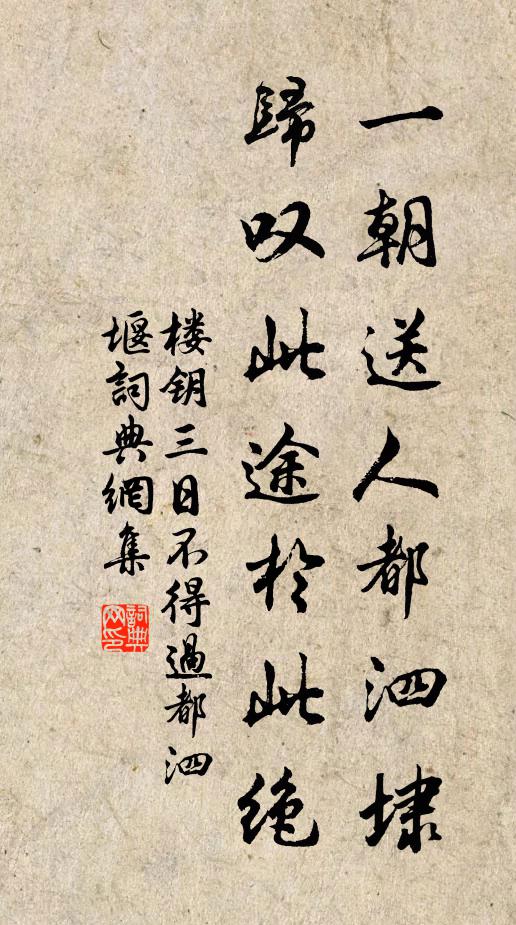 一朝送人都泗埭
歸叹此途於此绝
楼钥三日不得過都泗
堰詞典網集
詞典网印